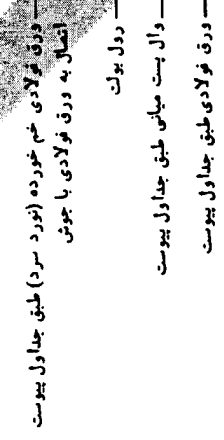 ورق فولادی خم خورده (نورد سرد) طبق جداول پیوست
اتصال به ورق فولادی با جوش
رول بولت
وال پست میانی طبق جداول پیوست
ورق فولادی طبق جداول پیوست